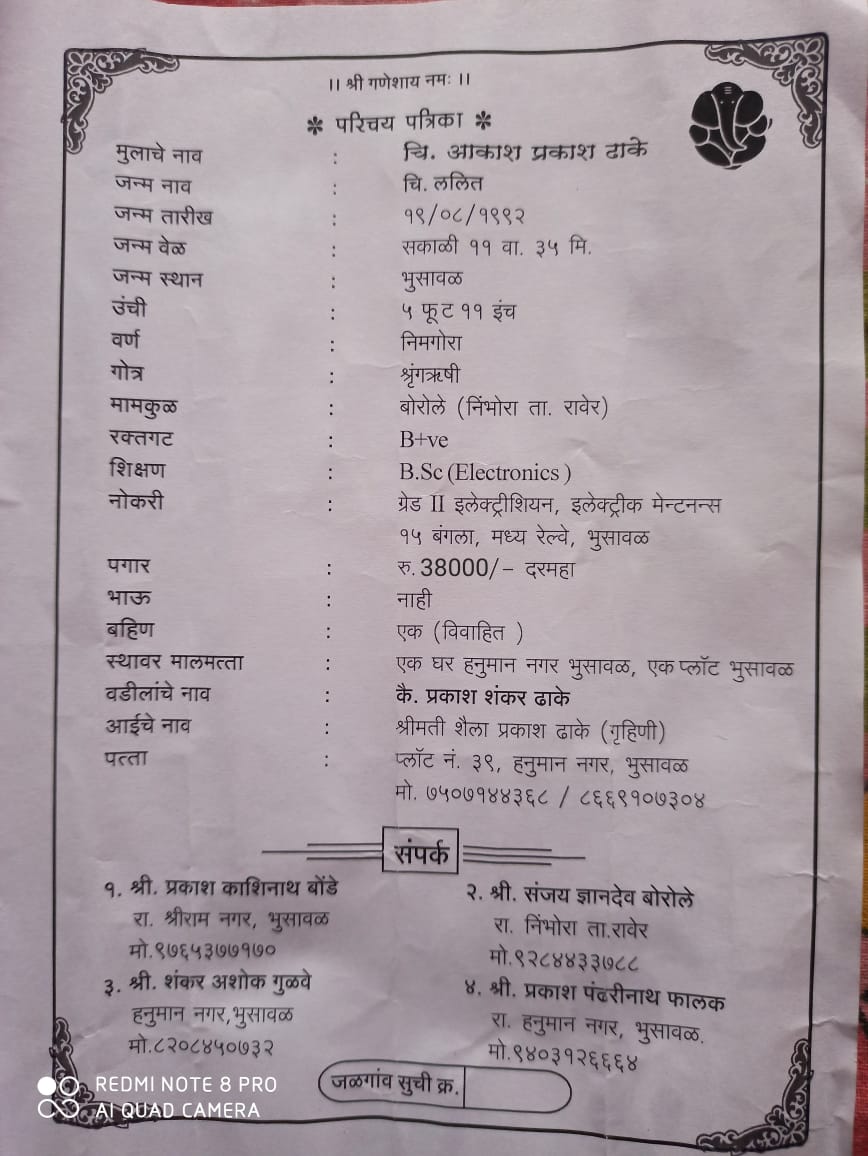 ।। श्री गणेशाय नमः ।।
* परिचय पत्रिका *
मुलाचे नाव : चि. आकाश प्रकाश ढाके
जन्म नाव : चि. ललित
जन्म तारीख : १९/०८/१९९२
जन्म वेळ : सकाळी ११ वा. ३५ मि.
जन्म स्थान : भुसावळ
उंची : ५ फूट ११ इंच
वर्ण : निमगोरा
गोत्र : श्रृंगऋषी
मामकुळ : बोरोले (निंभोरा ता. रावेर)
रक्तगट : B+ve
शिक्षण : B.Sc (Electronics )
नोकरी : ग्रेड II इलेक्ट्रीशियन, इलेक्ट्रीक मेन्टनन्स
१५ बंगला, मध्य रेल्वे, भुसावळ
पगार : रु. 38000/- दरमहा
भाऊ : नाही
बहिण : एक (विवाहित )
स्थावर मालमत्ता : एक घर हनुमान नगर भुसावळ, एक प्लॉट भुसावळ
वडीलांचे नाव : कै. प्रकाश शंकर ढाके
आईचे नाव : श्रीमती शैला प्रकाश ढाके (गृहिणी)
पत्ता : प्लॉट नं. ३९, हनुमान नगर, भुसावळ
मो. ७५०७१४४३६८ / ८६६९१०७३०४
संपर्क
१. श्री. प्रकाश काशिनाथ बोंडे
रा. श्रीराम नगर, भुसावळ
मो.९७६५३७७१७०
२. श्री. संजय ज्ञानदेव बोरोले
रा. निंभोरा ता.रावेर
मो.९२८४४३३७८८
३. श्री. शंकर अशोक गुळवे
हनुमान नगर,भुसावळ
मो.८२०८४५०७३२
४. श्री. प्रकाश पंढरीनाथ फालक
रा. हनुमान नगर, भुसावळ.
मो.९४०३१२६६६४
जळगांव सुची क्र.
REDMI NOTE 8 PRO
AI QUAD CAMERA